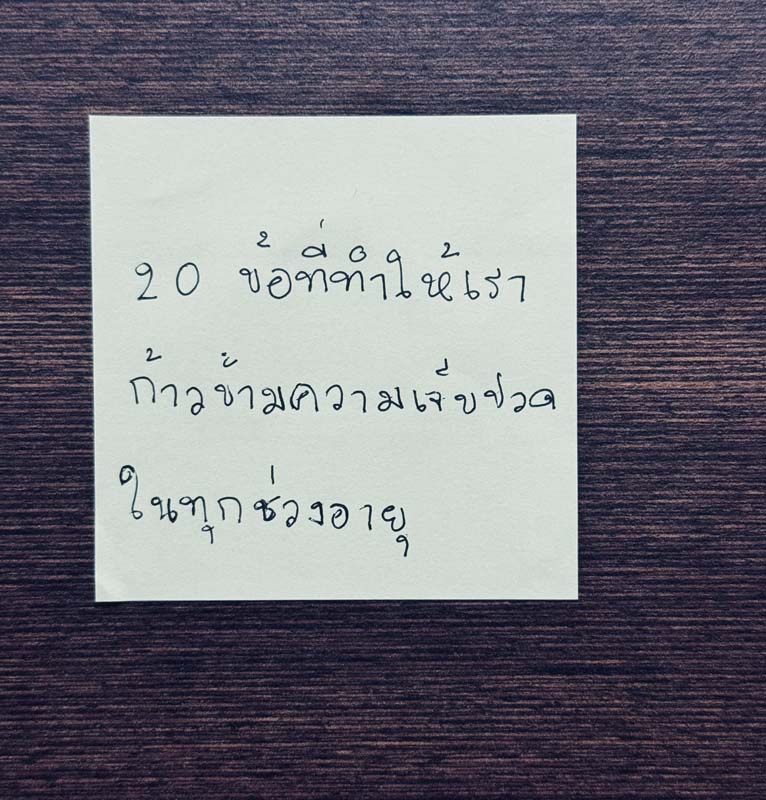 20 ข้อที่ทำให้เรา
ก้าวข้ามความเจ็บปวด
ในทุกช่วงอายุ